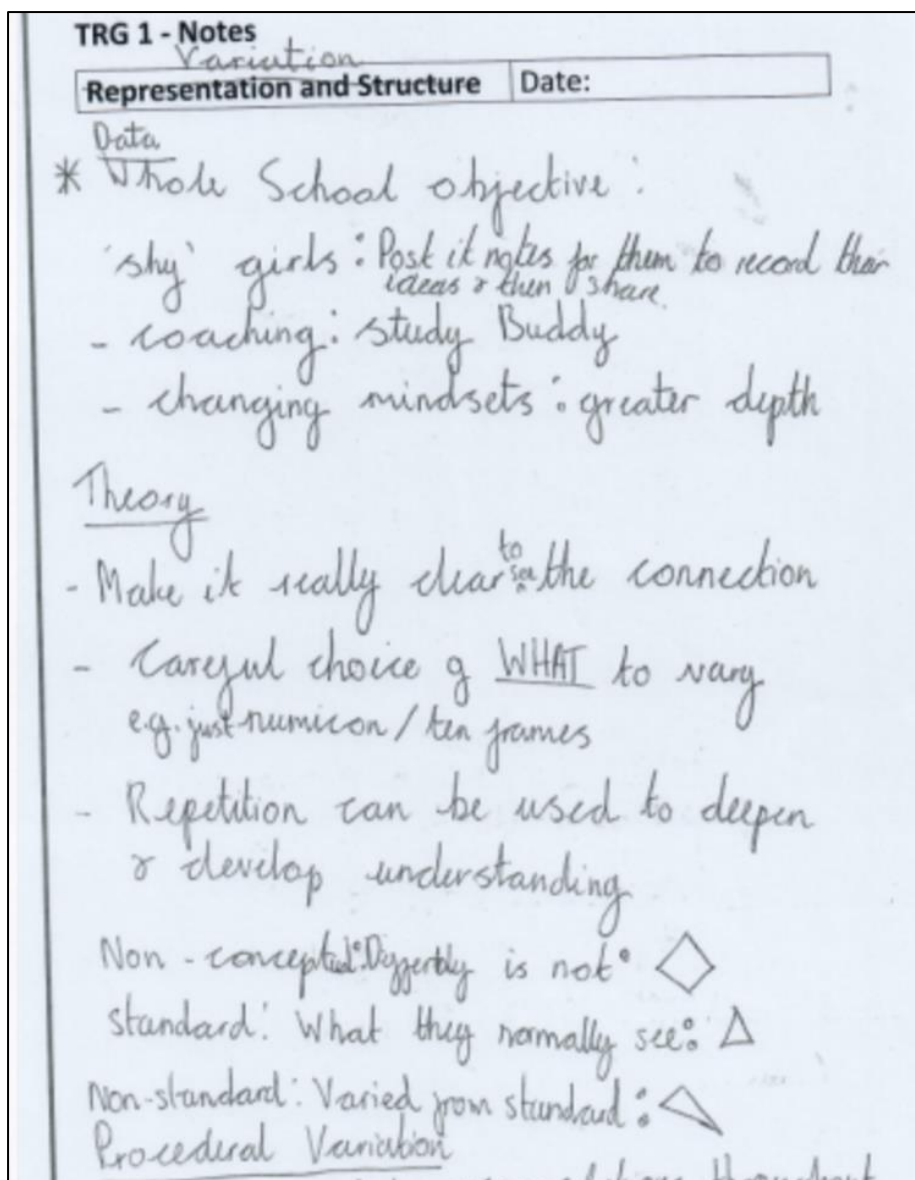 TRG 1 - Notes
Variation
Representation and Structure Date:
Data
* Whole School objective :
'shy' girls : Post it notes for them to record their
ideas & then share.
- coaching : study Buddy
- changing mindsets : greater depth
Theory
- Make it really clear to see the connection
- Careful choice of WHAT to vary
e.g. just numicon / ten frames
- Repetition can be used to deepen
& develop understanding
Non - conceptual: is not :
standard : What they normally see :
Non-standard : Varied from standard :
Procederal Variation
throughout